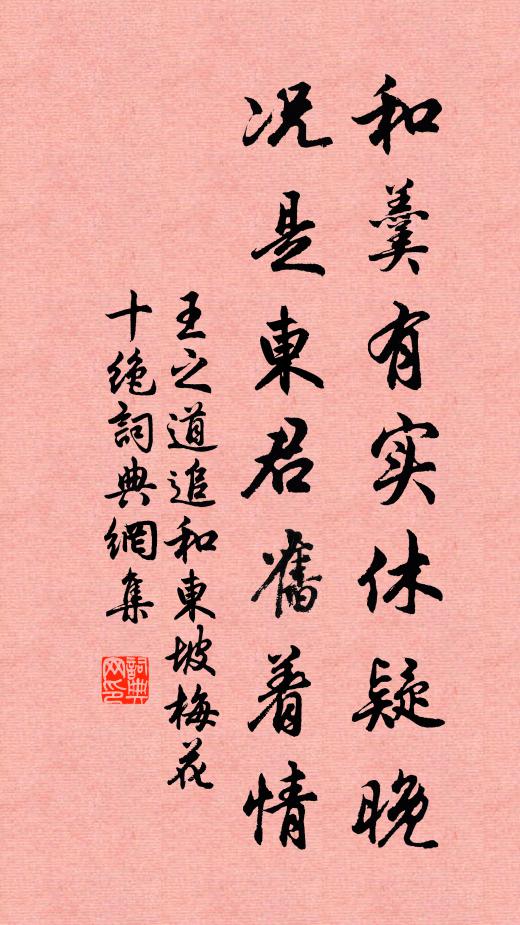 和羹有实休疑晚
况是東君舊着情
王之道追和東坡梅花
十绝詞典網集
詞典網印